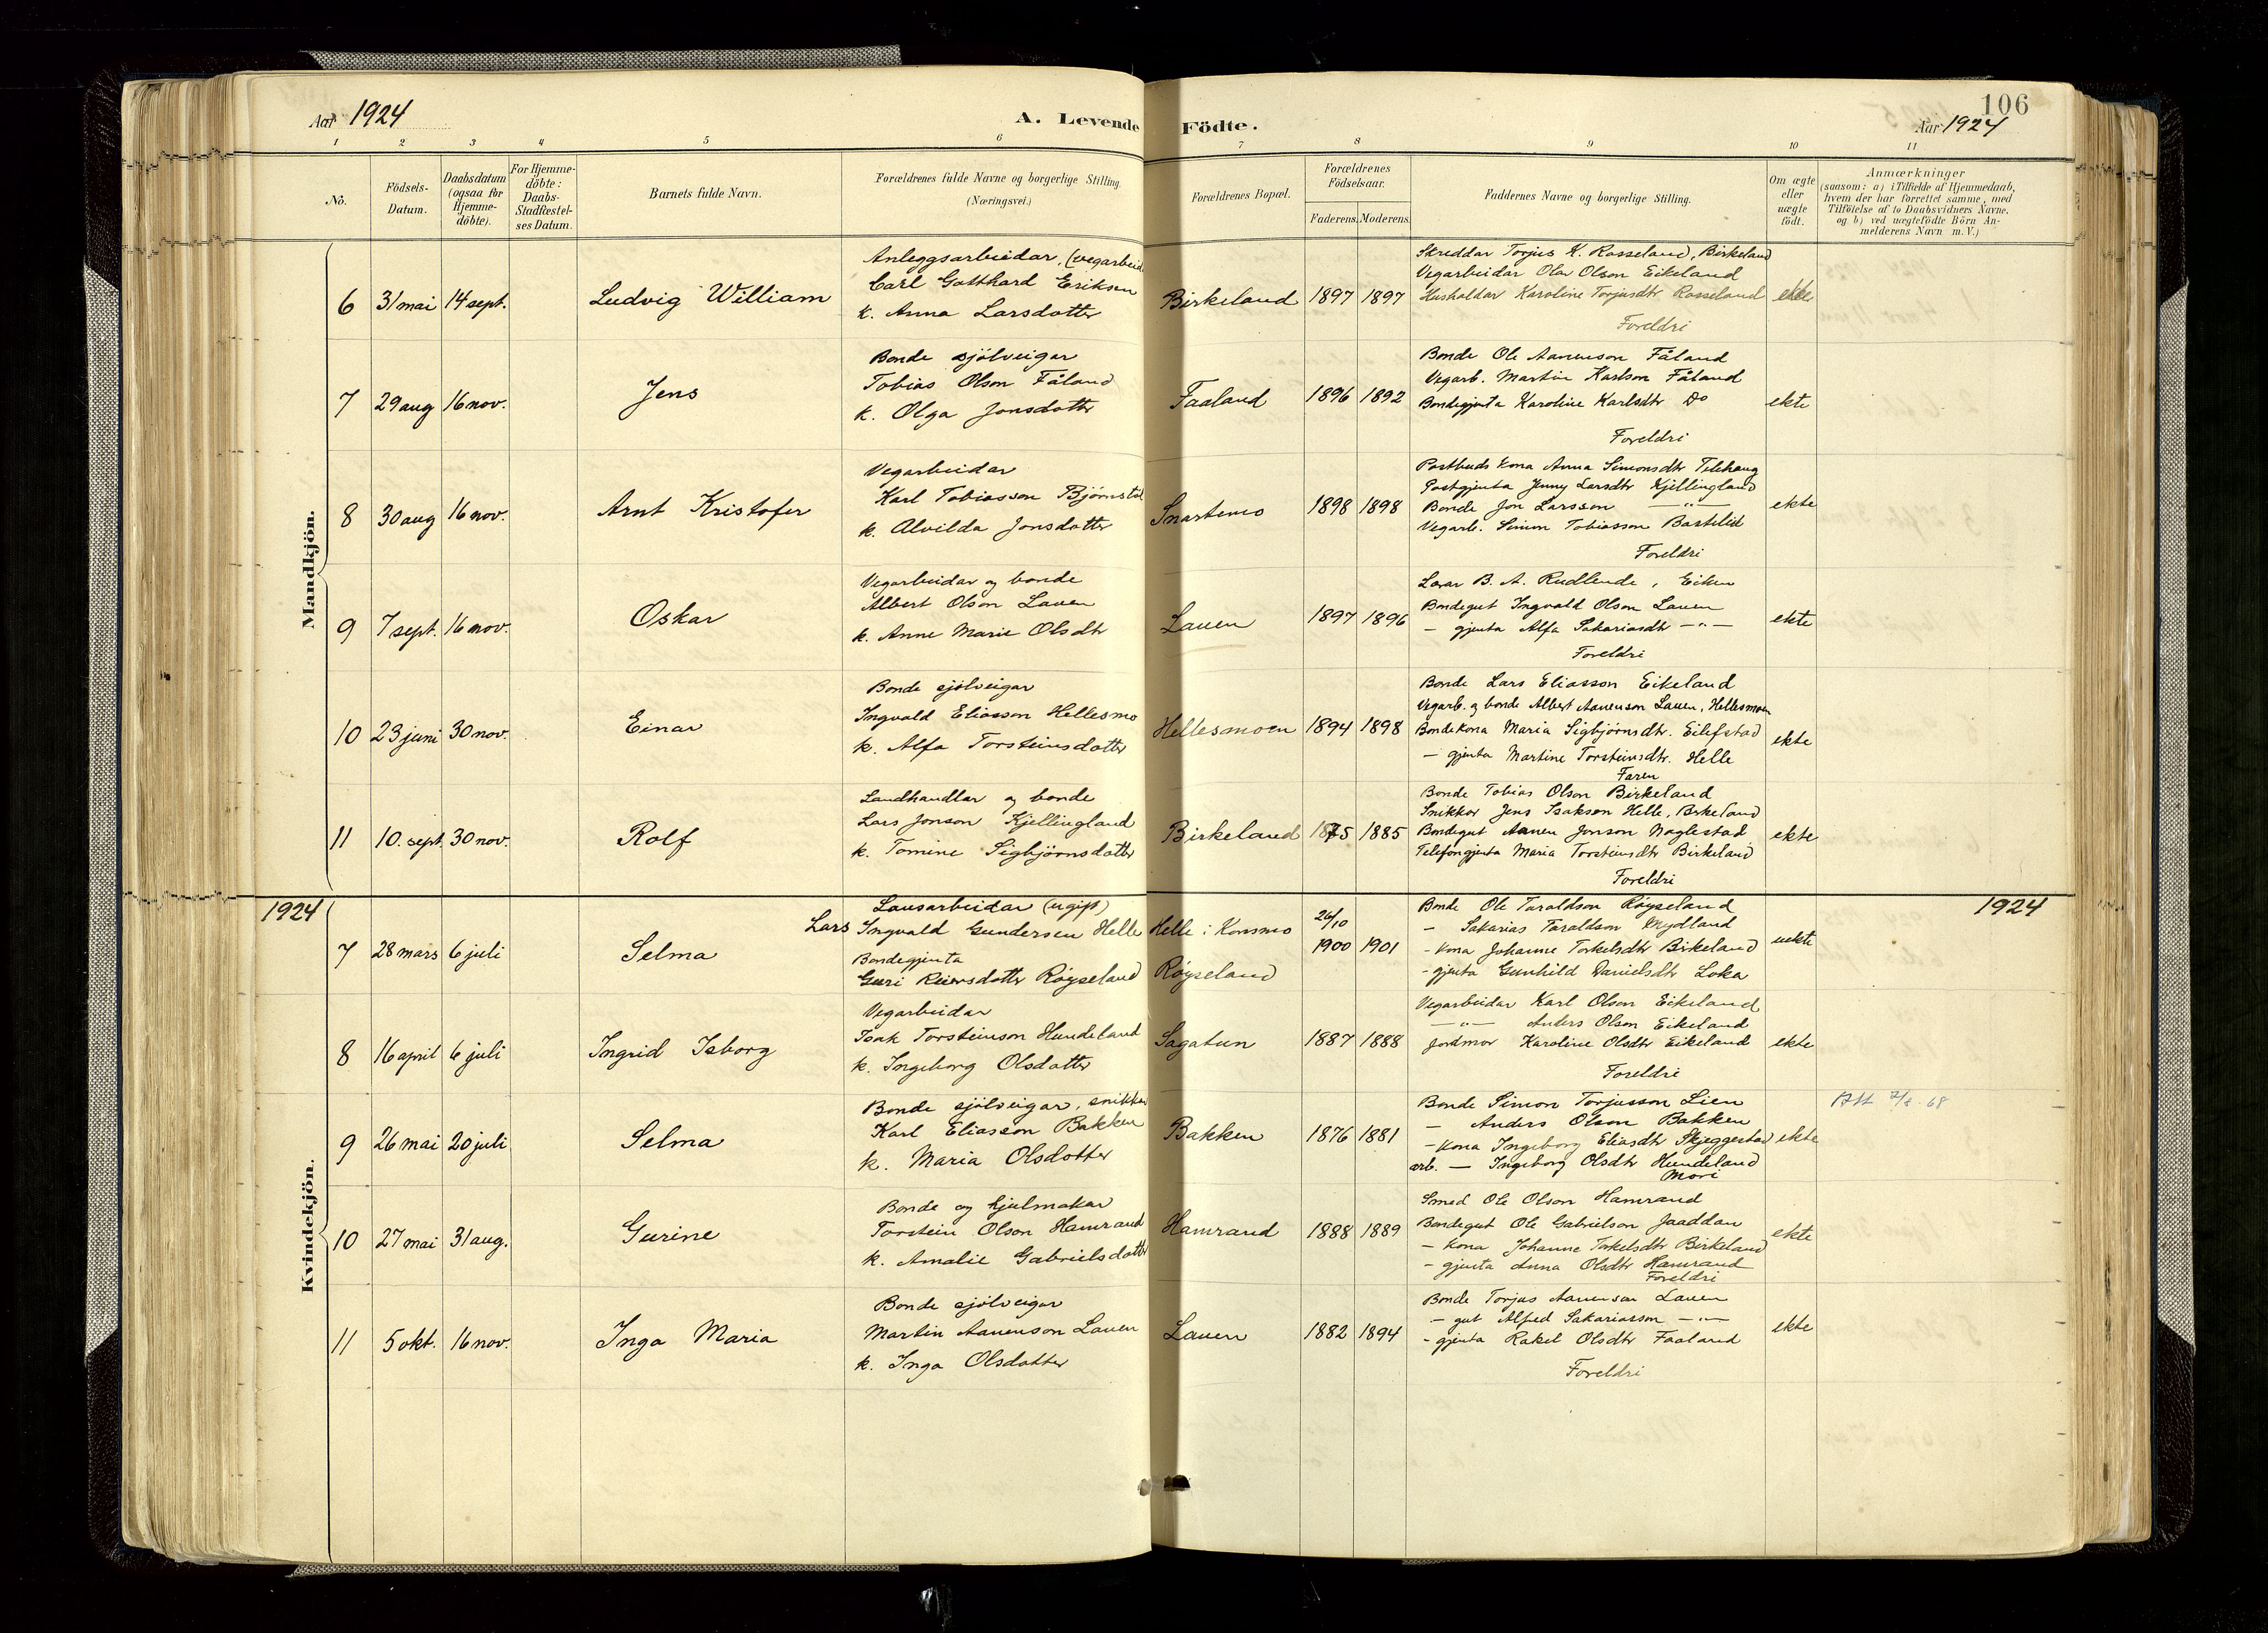 Aar 1924
A. Levende Födte.
106
Aar 1924
1 2 3 4 5 6 7 8 9 10 11
No.
Födsels-
Datum.
Daabsdatum
(ogsaa for
Hjemme-
döbte).
For Hjemme-
döbte:
Daabs-
Stadfæstel-
ses Datum.
Barnets fulde Navn.
Forældrenes fulde Navne og borgerlige Stilling.
(Næringsvei.)
Forældrenes Bopæl.
Forældrenes
Födselsaar.
Faderens. Moderens.
Faddernes Navne og borgerlige Stilling.
Om ægte
eller
uægte
födt.
Anmærkninger
(saasom: a) i Tilfælde af Hjemmedaab,
hvem der har forrettet samme, med
Tilföielse af to Daabsvidners Navne,
og b) ved uægtefödte Börn An-
melderens Navn m. V.)
Mandkjön.
6 31 mai 14 sept.
Ludvig William
Anleggsarbeidar, (vegarbeid
Carl Gotthard Eriksen
k. Anna Larsdotter
Birkeland 1897 1897
Skreddar Torjus K. Rosseland, Birkeland
Vegarbeidar Olav Olson Eikeland
Husholdar Karoline Torjusdtr Rosseland
Foreldri
ekte
7 29 aug 16 nov.
Jens
Bonde sjölveigar
Tobias Olson Fåland
k. Olga Jonsdotter
Faaland 1896 1892
Bonde Ole Aanenson Fåland
Vegarb. Martin Karlson Fåland
Bondegjenta Karoline Karlsdtr Do
Foreldri
ekte
8 30 aug 16 nov.
Arnt Kristofer
Vegarbeidar
Karl Tobiasson Bjørnstøl
k. Alvilda Jonsdotter
Snartemo 1898 1898
Postbuds kona Anna Simonsdtr Telehaug
Postgjenta Jenny Larsdtr Kjellingland
Bonde Jon Larsson — " —
Vegarb. Simon Tobiasson Bastelid
Foreldri
ekte
9 7 sept. 16 nov.
Oskar
Vegarbeidar og bonde
Albert Olson Lauen
k. Anne Marie Olsdtr
Lauen 1897 1896
Lærar B. A. Rudlende, Eiken
Bondegut Ingvald Olson Lauen
— gjenta Alfa Sakariasdtr — " —
Foreldri
ekte
10 23 juni 30 nov.
Einar
Bonde sjölveigar
Ingvald Eliasson Hellesmo
k. Alfa Torsteinsdotter
Hellesmoen 1894 1898
Bonde Lars Eliasson Eikeland
Vegarb. og bonde Albert Aanenson Lauen, Hellesmoen
Bondekona Maria Sigbjörnsdtr. Eilefstad
— gjenta Martine Torsteinsdtr. Helle
Faren
ekte
11 10. sept. 30 nov.
Rolf
Landhandlar og bonde
Lars Jonson Kjellingland
k. Tomine Sigbjörnsdotter
Birkeland 1875 1885
Bonde Tobias Olson Birkeland
Snikkar Jens Isakson Helle, Birkeland
Bondegut Aanen Jonson Naglestad
Telefongjenta Maria Torsteinsdtr Birkeland
Foreldri
ekte
1924
1924
Kvindekjön.
7 28 mars 6 juli
Selma
Lausarbeidar (ugift)
Lars Ingvald Gundersen Helle
Bondegjenta
Guri Reiersdotter Røyseland
Helle i Konsmo
Røyseland
26/10
1900 1901
Bonde Ole Taraldson Røyseland
— Sakarias Taraldson Mydland
- kona Johanne Torkelsdtr Birkeland
- gjenta Gunhild Danielsdtr Loka
uekte
8 16 april 6 juli
Ingrid Isborg
Vegarbeidar
Isak Torsteinson Hundeland
k. Ingeborg Olsdotter
Sagatun 1887 1888
Vegarbeidar Karl Olson Eikeland
— " — Anders Olson Eikeland
Jordmor Karoline Olsdtr Eikeland
Foreldri
ekte
9 26 mai 20 juli
Selma
Bonde sjölveigar, snikker
Karl Eliasson Bakken
k. Maria Olsdotter
Bakken 1876 1881
Bonde Simon Torjusson Lien
— Anders Olson Bakken
- kona Ingeborg Eliasdtr Skjeggestad
arb. — Ingeborg Olsdtr Hundeland
Mori
ekte
10 27 mai 31 aug.
Gurine
Bonde og hjulmakar
Torstein Olson Hamrand
k. Amalie Gabrielsdotter
Hamrand 1888 1889
Smed Ole Olson Hamrand
Bondegut Ole Gabrielson Jaaddan
— kona Johanne Torkelsdtr Birkeland
- gjenta Anna Olsdtr Hamrand
Foreldri
ekte
11 5 okt. 16 nov.
Inga Maria
Bonde sjölveigar
Martin Aanenson Lauen
k. Inga Olsdotter
Lauen 1882 1894
Bonde Torjus Aanenson Lauen
— gut Alfred Sakariasson — " —
- gjenta Rakel Olsdtr Faaland
Foreldri
ekte